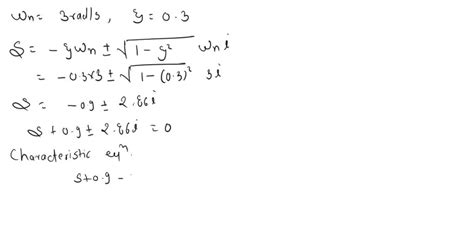 ωn = 3 rad/s, ξ = 0.3
S = -ξωn ± √1-ξ² ωn i
= -0.3×3 ± √1-(0.3)² 3i
S = -0.9 ± 2.86i
S + 0.9 ± 2.86i = 0
Characteristic eqⁿ.
S+0.9 -